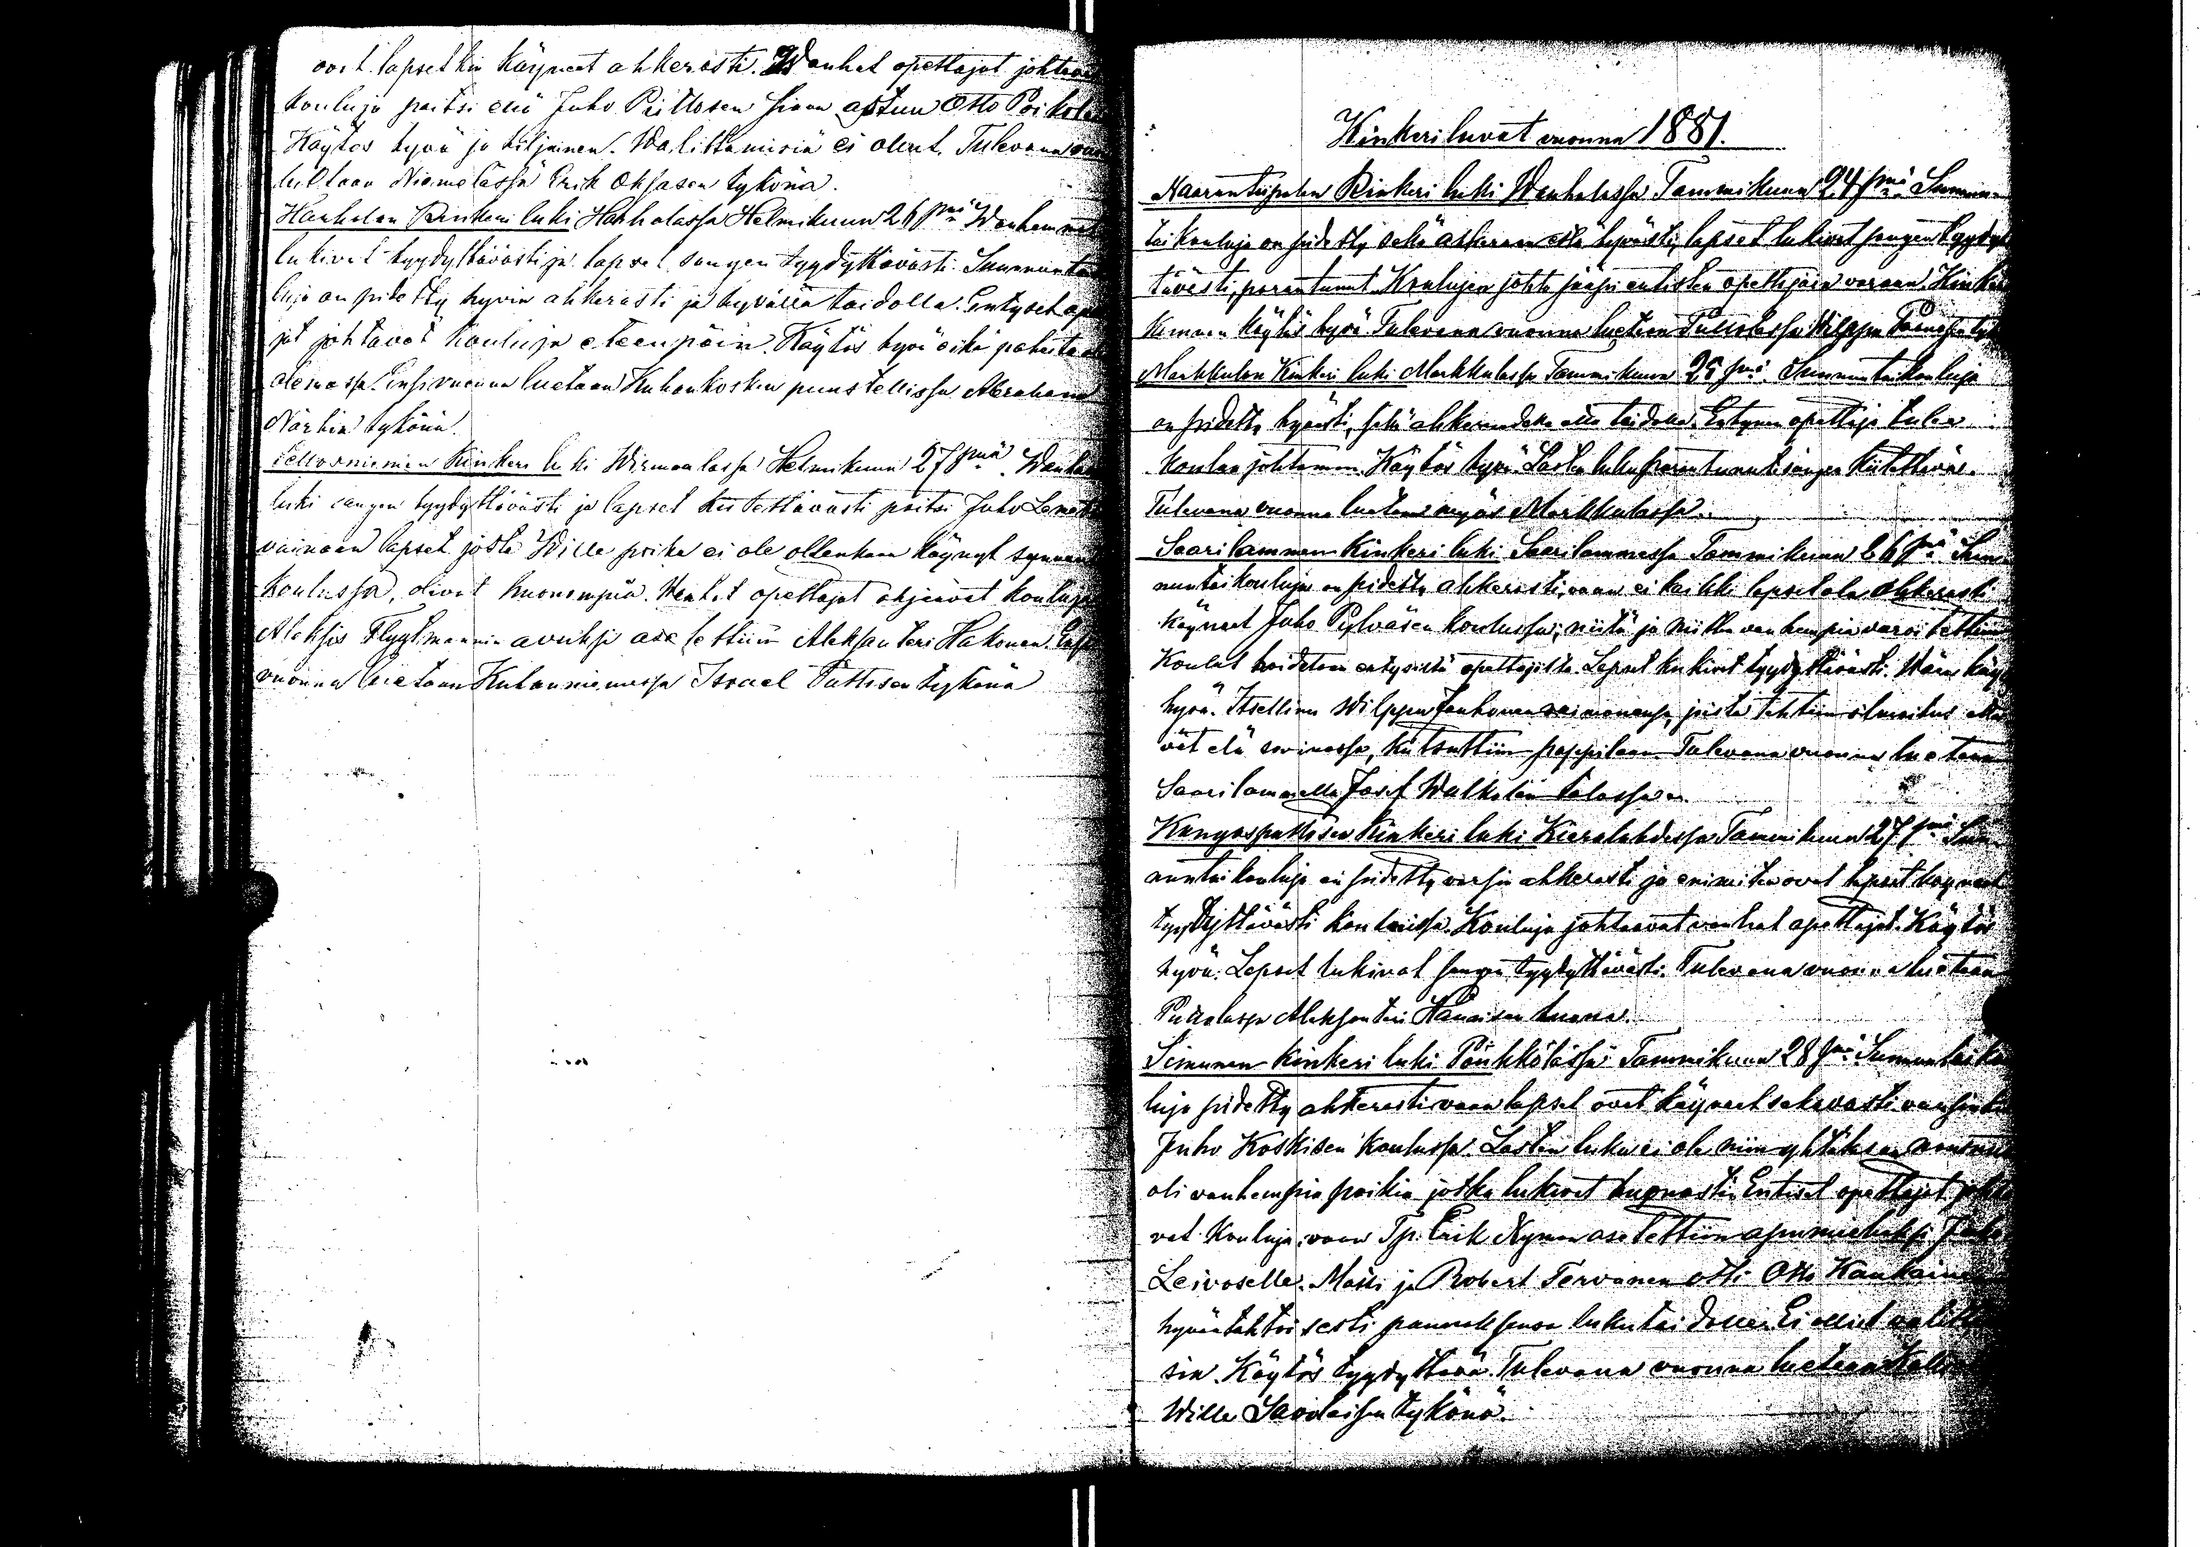 ovat lapsetkin käyneet ahkerasti. Wanhat opettajat johtava
kouluja paitsi että Juho Piillosen siaan astuu Otto Poikola
Käytös hyvä ja hiljainen. Walittamisia ei olent. Tulevana vuo
luetaan Niemelässä Erik Ohtasen tykönä.
Haukolan Kinkeri luki Haukolassa Helmikuun 26 pnä Wanhemmat
lukivat tyydyttävästi ja lapset sangen tyydyttävästi. Sunnunta
luja on pidetty hyvin ahkerasti ja hyvällä taidolla. Entyset ope
jat johtavat kouluja eteenpäin. Käytös hyvä eikä pahuutta
olemassa. Ensi vuonna luetaan Kuhankosken puustellissa Abraham
Närhin tykönä.
Kinkeri luki Wirmaalassa Helmikuun 27 pnä. Wanha
luki sangen tyydyttävästi ja lapset kiitettävästi paitsi Juho
vainaan lapset joista Wille poika ei ole ollenkaan käynyt sunnun
koulussa, olivat huonompia. Wanhat opettajat ohjaavat kouluja
Aleksis Flygtmannin avuksi asetettiin Aleksanteri Hakonen. Ensi
vuonna luetaan Kuhanniemessä Israel Pättisen tykönä
Kinkeriluvat vuonna 1881.
Naarantaipaleen Kinkeri luki Wanhalassa Tammikuun 24 pnä Sunnun-
taikouluja on pidetty sekä ahkeraan että hyvästi, lapset lukivat sangen tyydyt
tävästi, parantunut. Koulujen johto jääpi entisten opettajain varaan. Kinke
kunnan käytös hyvä. Tulevana vuonna luetaan Pullolassa Wilppu
Markkulan Kinkeri luki Markkulassa Tammikuun 25 pnä. Sunnuntaikouluja
on pidetty hyvästi, sekä ahkeruudella että taidolla. Entynen opettaja tulee
koulua johtamaan. Käytös hyvä. Lasten luku parantunut sangen kiitettävä.
Tulevana vuonna luetaan myös Markkulassa.
Saarilammen Kinkeri luki Saarilammessa Tammikuun 26 pnä Sun-
nuntaikouluja on pidetty ahkerasti, vaan ei kaikki lapset ole ahkerasti
käyneet Juho Pylväsen koulussa; niitä ja niitten vanhempia varoitettiin
Koulut hoidetaan entysistä opettajista. Lapset lukivat tyydyttävästi. Wäen käy
hyvä. Itsellinen Wilppu Jauhonen vaimonensa, joista tehtiin ilmoitus että
vät elä sovinnossa, kutsuttiin pappilaan. Tulevana vuonna luetaan
Saarilammella Josef Walkolan talossa.
Kangasputtosen Kinkeri luki Kieralahdessa Tammikuun 27 pnä Sun-
nuntaikouluja on pidetty varsin ahkerasti ja enimiten ovat lapset käyneet
tyydyttävästi kouluissa. Kouluja johtaavat vanhat opettajat. Käytös
hyvä. Lapset lukivat sangen tyydyttävästi. Tulevana vuonna luetaan
Aleksanteri Hännisen luona.
Simunan Kinkeri luki Pänkkölässä Tammikuun 28 pnä. Sunnuntaikou
luja pidetty ahkerasti vaan lapset ovat käyneet sekavasti varsinkin
Juho Koskisen koulussa. Lasten luku ei ole niin yhtäläinen
oli vanhempia poikia jotka lukivat huonosti. Entiset opettajat johta
vat kouluja, vaan Tp. Erik Nyman asetettiin apumieheksi Juho
Leivoselle. Matti ja Robert Tervanen otti Otto Kaukainen
hyväntahtoisesti pannaksensa lukutaidolle. Ei ollut valitta
sia. Käytös tyydyttävä. Tulevana vuonna luetaan
Wille Savolaisen tykönä.